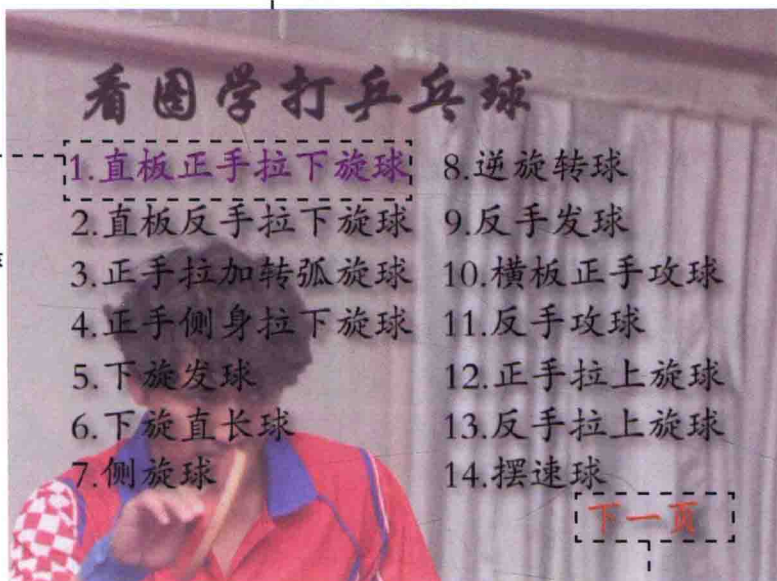 看图学打乒乓球
1.直板正手拉下旋球
2.直板反手拉下旋球
3.正手拉加转弧旋球
4.正手侧身拉下旋球
5.下旋发球
6.下旋直长球
7.侧旋球
8.逆旋转球
9.反手发球
10.横板正手攻球
11.反手攻球
12.正手拉上旋球
13.反手拉上旋球
14.摆速球
下一页